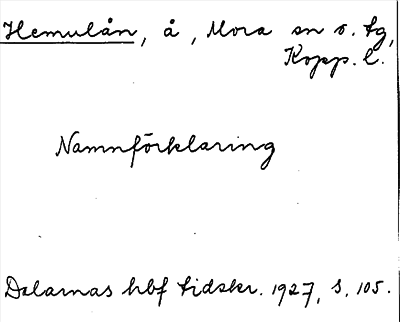 Hemulån, å, Mora sn o. tg,
Kopp. l.
Namnförklaring
Dalarnas hbf tidskr. 1927, s. 105.